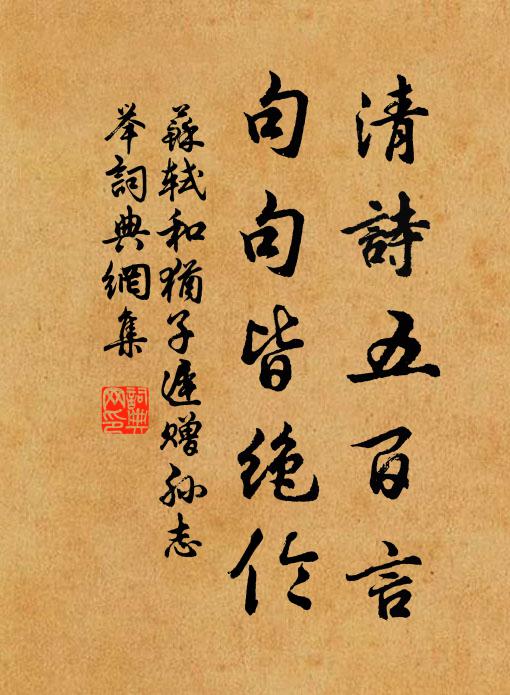 清詩五百言
句句皆絶伦
蘇軾和猶子遲贈孫志
举詞典網集
詞典網印